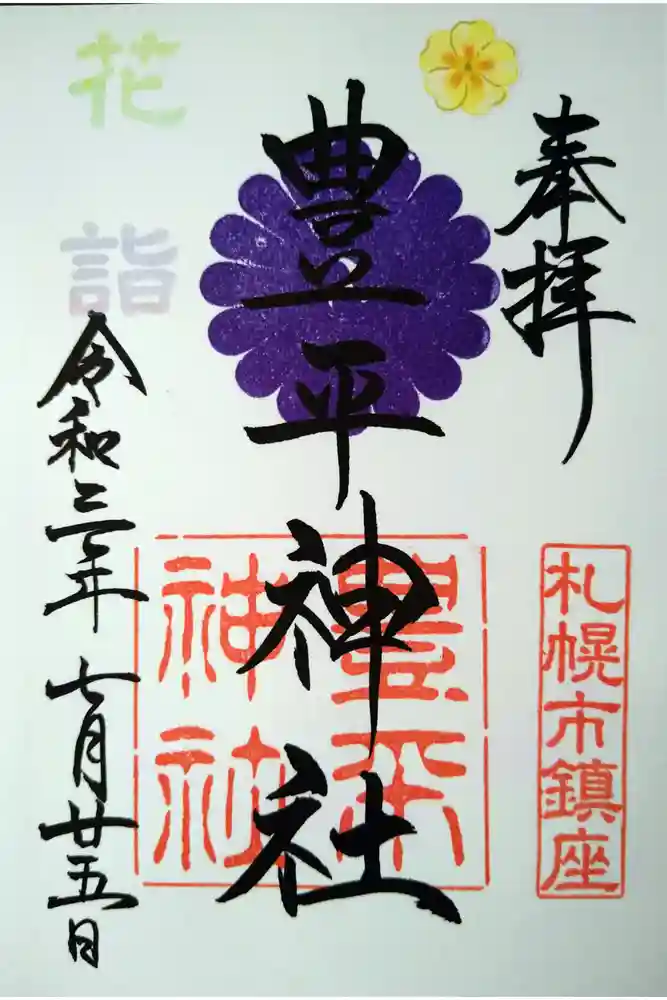 奉拝
札幌市鎮座
豊平神社
豊平
神社
花詣
令和三年七月廿五日